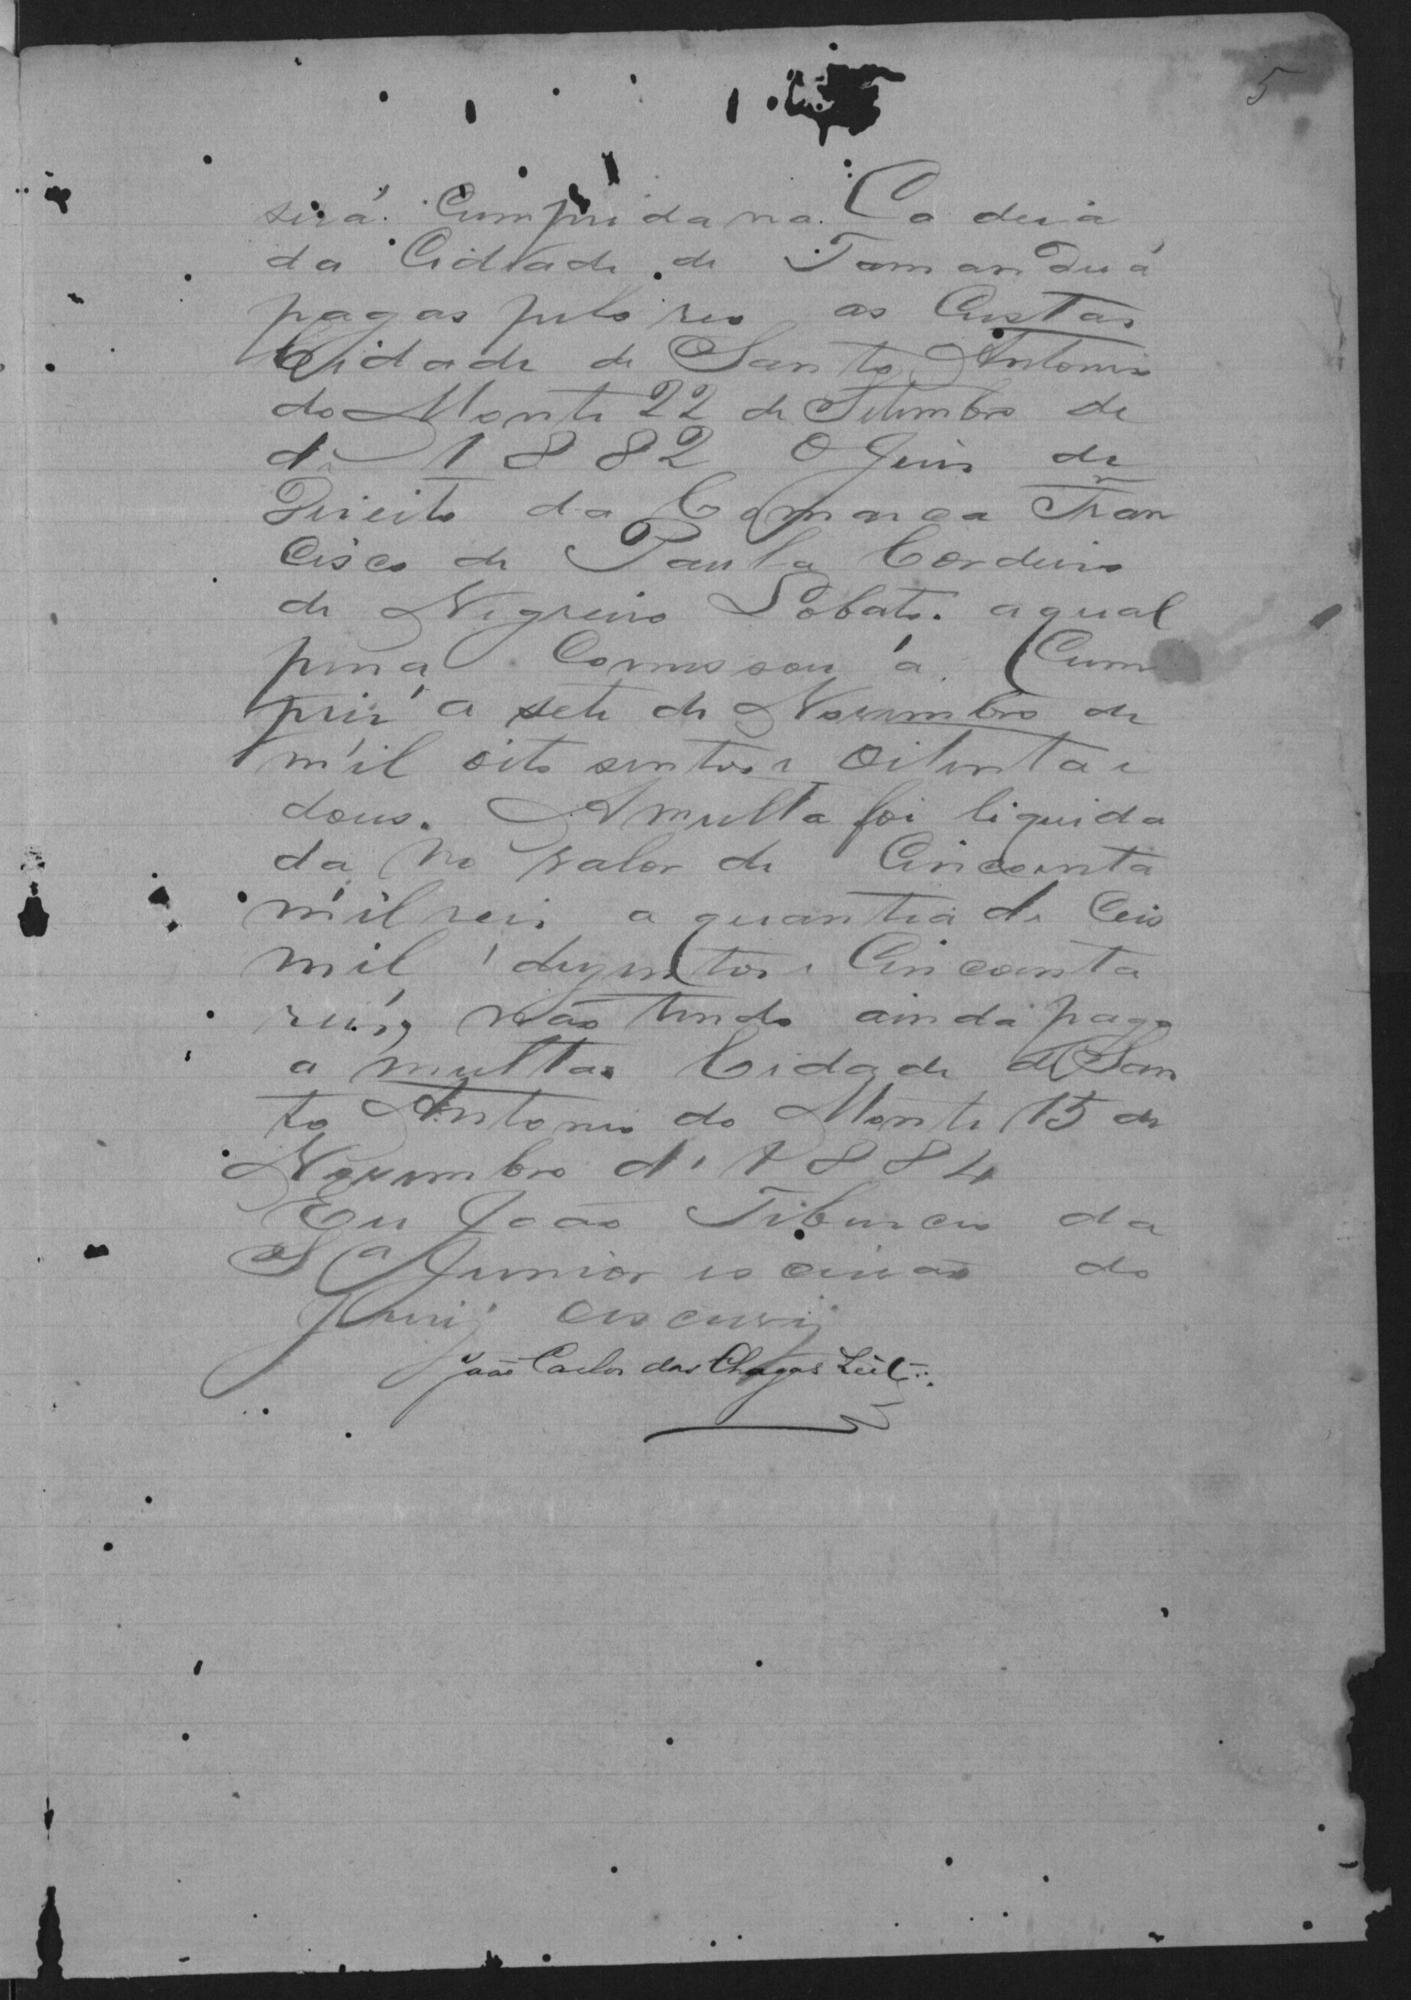 5
será Cumprida na Cadeia
da Cidade de Tamanduá
pagas pelo reo as Custas
Cidade de Santo Antonio
do Monte 22 de Setembro de
de 1882 O Juis de
Direito da Comarca Fran
cisco de Paula Cordeiro
de Negreiro Lobato. a qual
pena Comessou á Cum
prir a sete de Novembro de
mil oito sentos e oitenta e
dous. A multa foi liquida
da no valor de Cincoenta
mil reis a quantia de Ceis
mil dusentos e Cincoenta
reis, não tendo ainda pago
a multa. Cidade de San
to Antonio do Monte 15 de
Novembro de 1884
Eu João Tiburcio da
Sª Junior escrivão do
Jury escrevij
João Carlos das Chagas Leite